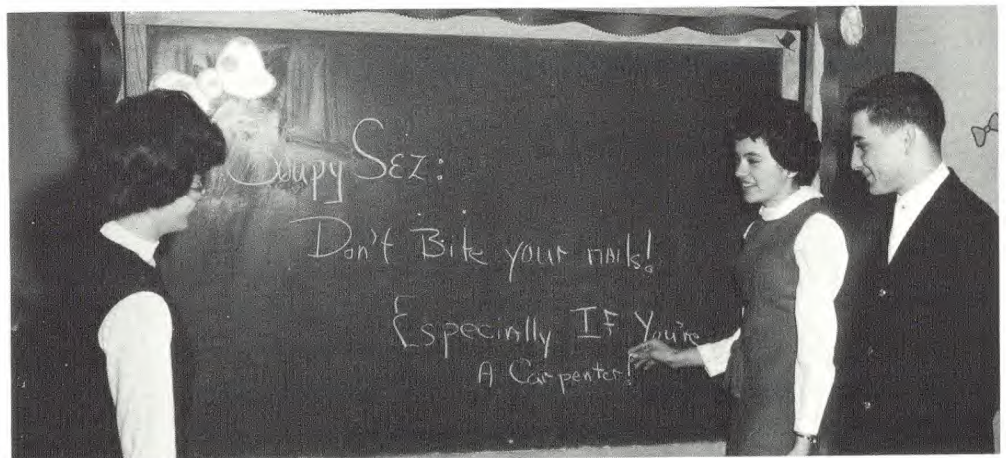 Soupy Sez:
Don't Bite your nails!
Especially If You're
A Carpenter!